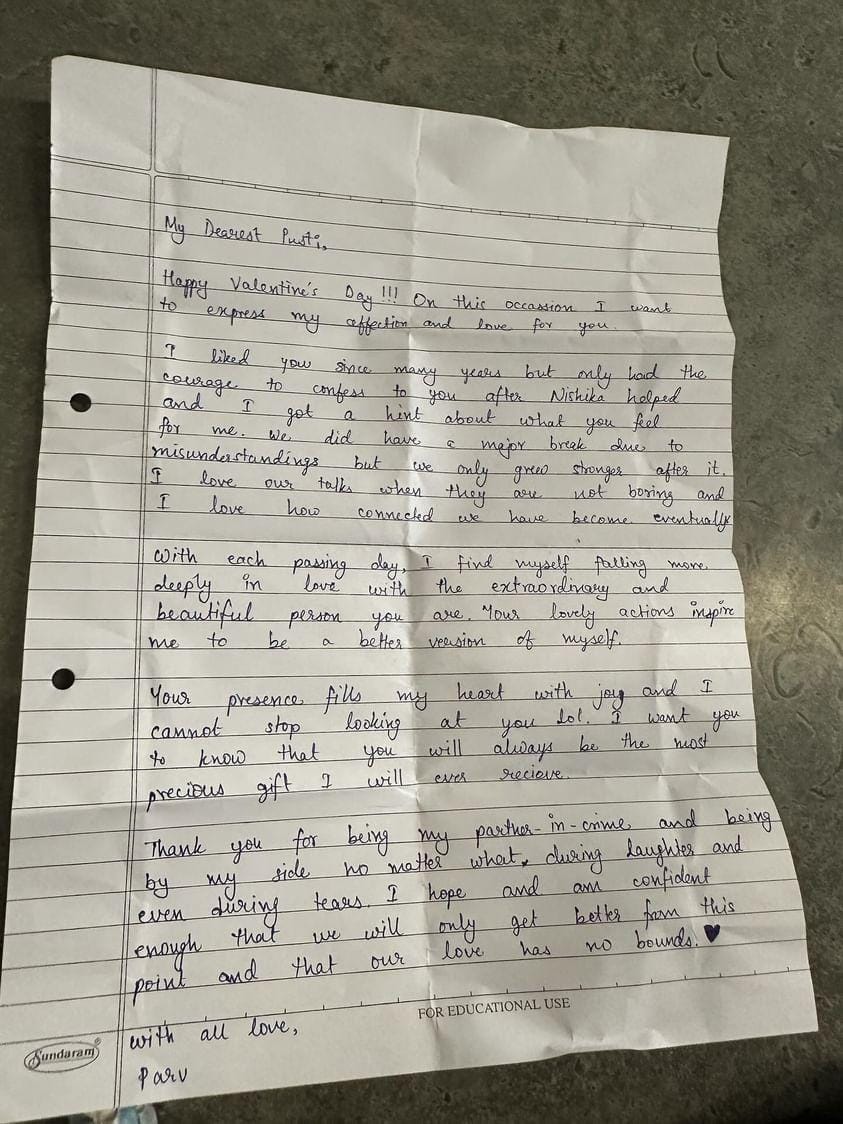 My Dearest Pusti,
Happy Valentine's Day!!! On this occassion I want
to express my affection and love for you.
I liked you since many years but only had the
courage to confess to you after Nishika helped
and I got a hint about what you feel
for me. We did have a major break due to
misunderstandings but we only grew stronger after it.
I love our talks when they are not boring and
I love how connected we have become eventually
With each passing day, I find myself falling more
deeply in love with the extraordinary and
beautiful person you are. Your lovely actions inspire
me to be a better version of myself.
Your presence fills my heart with joy and I
cannot stop looking at you lol. I want you
to know that you will always be the most
precious gift I will ever recieve.
Thank you for being my partner-in-crime and being
by my side no matter what, during laughter and
even during tears. I hope and am confident
enough that we will only get better from this
point and that our love has no bounds. ♥
FOR EDUCATIONAL USE
with all love,
Sundaram®
Parv